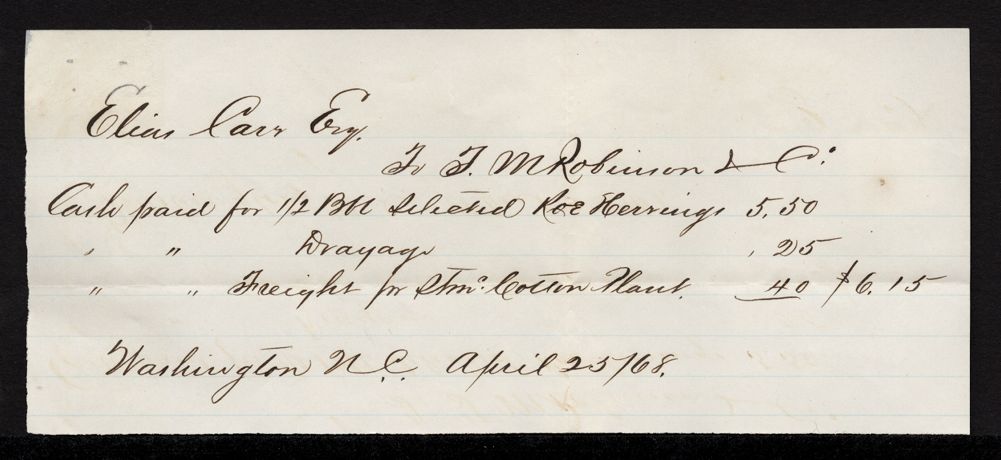 Elias Carr Esq.
To T. M Robinson & Co.
Cash paid for 1/2 Bbl Selected Roe Herrings 5.50
" " Drayage .25
" " Freight pr Stmr. Cotton Plant. 40 $6.15
Washington N.C. April 25/68.